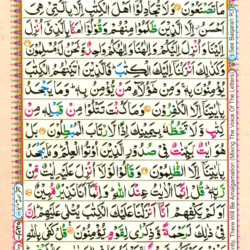 مَا تَصْنَعُوْنَ ۝ وَلَا تُجَادِلُوْۤا اَهْلَ الْكِتٰبِ اِلَّا بِالَّتِيْ هِيَ
اَحْسَنُ اِلَّا الَّذِيْنَ ظَلَمُوْا مِنْهُمْ وَقُوْلُوْۤا اٰمَنَّا بِالَّذِيْۤ اُنْزِلَ
اِلَيْنَا وَاُنْزِلَ اِلَيْكُمْ وَاِلٰهُنَا وَاِلٰهُكُمْ وَاحِدٌ وَّنَحْنُ لَهٗ مُسْلِمُوْنَ ۝
وَكَذٰلِكَ اَنْزَلْنَاۤ اِلَيْكَ الْكِتٰبَ فَالَّذِيْنَ اٰتَيْنٰهُمُ الْكِتٰبَ
يُؤْمِنُوْنَ بِهٖ وَمِنْ هٰۤؤُلَآءِ مَنْ يُّؤْمِنُ بِهٖ وَمَا يَجْحَدُ
بِاٰيٰتِنَاۤ اِلَّا الْكٰفِرُوْنَ ۝ وَمَا كُنْتَ تَتْلُوْا مِنْ قَبْلِهٖ مِنْ
كِتٰبٍ وَّلَا تَخُطُّهٗ بِيَمِيْنِكَ اِذًا لَّارْتَابَ الْمُبْطِلُوْنَ ۝ بَلْ
هُوَ اٰيٰتٌۢ بَيِّنٰتٌ فِيْ صُدُوْرِ الَّذِيْنَ اُوْتُوا الْعِلْمَ وَمَا يَجْحَدُ
بِاٰيٰتِنَاۤ اِلَّا الظّٰلِمُوْنَ ۝ وَقَالُوْا لَوْلَاۤ اُنْزِلَ عَلَيْهِ اٰيٰتٌ مِّنْ
رَّبِّهٖ قُلْ اِنَّمَا الْاٰيٰتُ عِنْدَ اللّٰهِ وَاِنَّمَاۤ اَنَا نَذِيْرٌ مُّبِيْنٌ ۝
اَوَلَمْ يَكْفِهِمْ اَنَّاۤ اَنْزَلْنَا عَلَيْكَ الْكِتٰبَ يُتْلٰى عَلَيْهِمْ اِنَّ
فِيْ ذٰلِكَ لَرَحْمَةً وَّذِكْرٰى لِقَوْمٍ يُّؤْمِنُوْنَ ۝
There Will Be Amalgamation (Mixing The Voice Of The Letters)
See Baqarah R